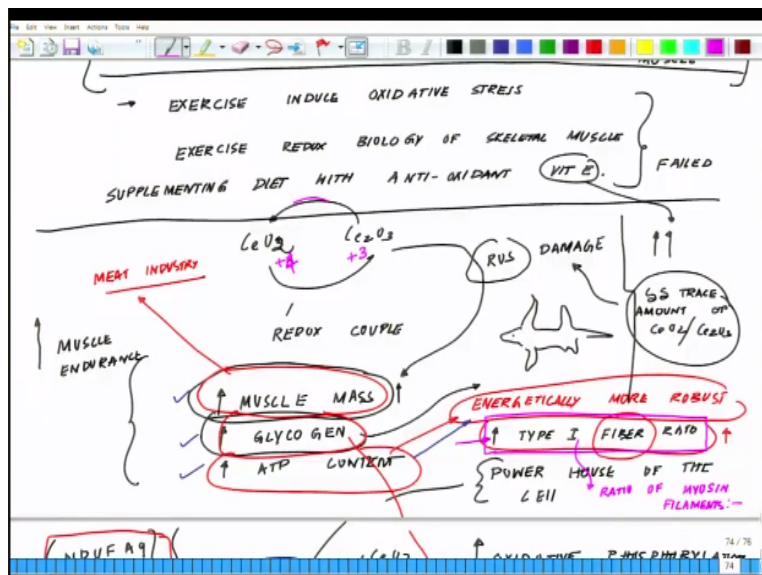 File Edit View Insert Actions Tools Help
MUSCLE
→ EXERCISE INDUCE OXIDATIVE STRESS
EXERCISE REDOX BIOLOGY OF SKELETAL MUSCLE
SUPPLEMENTING DIET WITH ANTI-OXIDANT VIT E.
FAILED
CeO2 Ce2O3
+4 +3
REDOX COUPLE
MEAT INDUSTRY
ROS DAMAGE
↑↑
SS TRACE
AMOUNT OF
CeO2/Ce2O3
↑ MUSCLE
ENDURANCE
↑ MUSCLE MASS ↑
↑ GLYCOGEN
↑ ATP CONTENT
ENERGETICALLY MORE ROBUST
↑ TYPE I FIBER RATO ↑
POWER HOUSE OF THE
CELL
RATIO OF MYOSIN
FILAMENTS:-
NDUFA9
CeO2
↑ OXIDATIVE PHOSPHRYLATIO
74 / 76
74